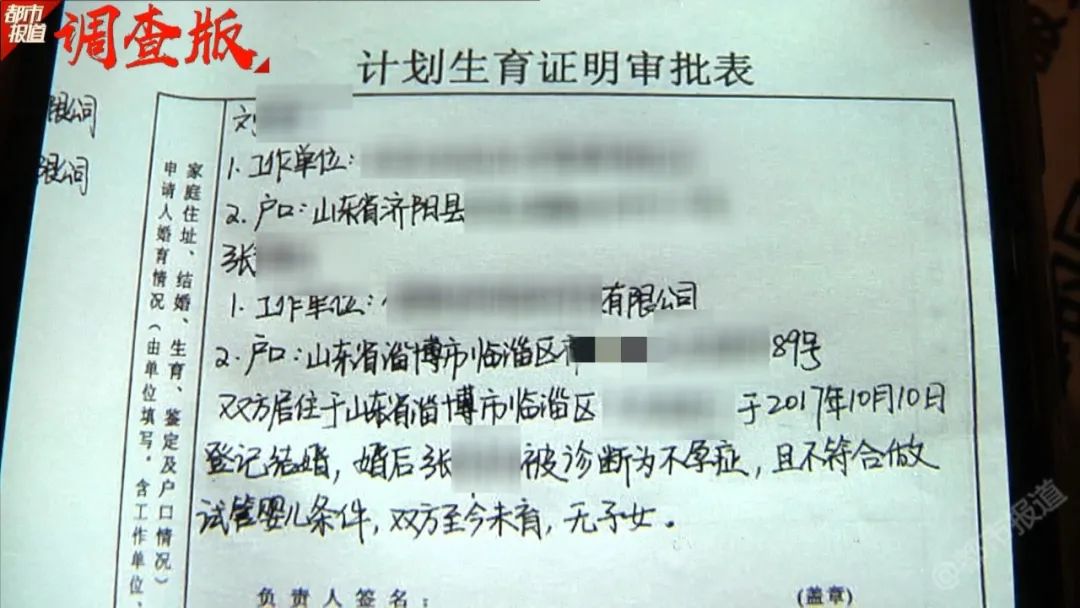 都市
报道
调查版
计划生育证明审批表
限公司
限公司
家庭住址、结婚、生育、鉴定及户口情况)
申请人婚育情况(由单位填写。含工作单位、
刘
1. 工作单位:
2. 户口:山东省济阳县
张
1. 工作单位:
有限公司
2. 户口:山东省淄博市临淄区
89号
双方居住于山东省淄博市临淄区
于2017年10月10日
登记结婚,婚后张
被诊断为不孕症,且不符合做
试管婴儿条件,双方至今未育,无子女。
负责人签名:
(盖章)
@都市报道